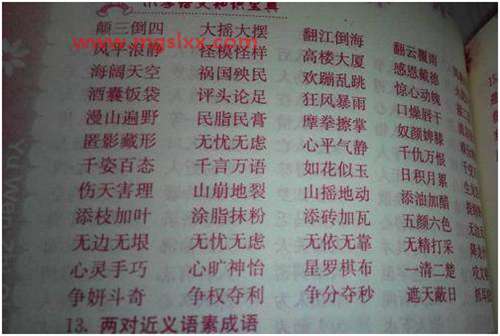 小学语文知识宝典
颠三倒四 大摇大摆 翻江倒海 翻云覆雨
www.mgslxx.com
风平浪静 怪模怪样 高楼大厦 感恩戴德
海阔天空 祸国殃民 欢蹦乱跳 惊心动魄
酒囊饭袋 评头论足 狂风暴雨 口燥唇干
漫山遍野 民脂民膏 摩拳擦掌 奴颜婢膝
匿影藏形 无忧无虑 心平气静 千仇万恨
千姿百态 千言万语 如花似玉 日积月累
伤天害理 山崩地裂 山摇地动 添油加醋
添枝加叶 涂脂抹粉 添砖加瓦 五颜六色
无边无垠 无忧无虑 无依无靠 无精打采
心灵手巧 心旷神怡 星罗棋布 一清二楚
争妍斗奇 争权夺利 争分夺秒 遮天蔽日
13. 两对近义语素成语